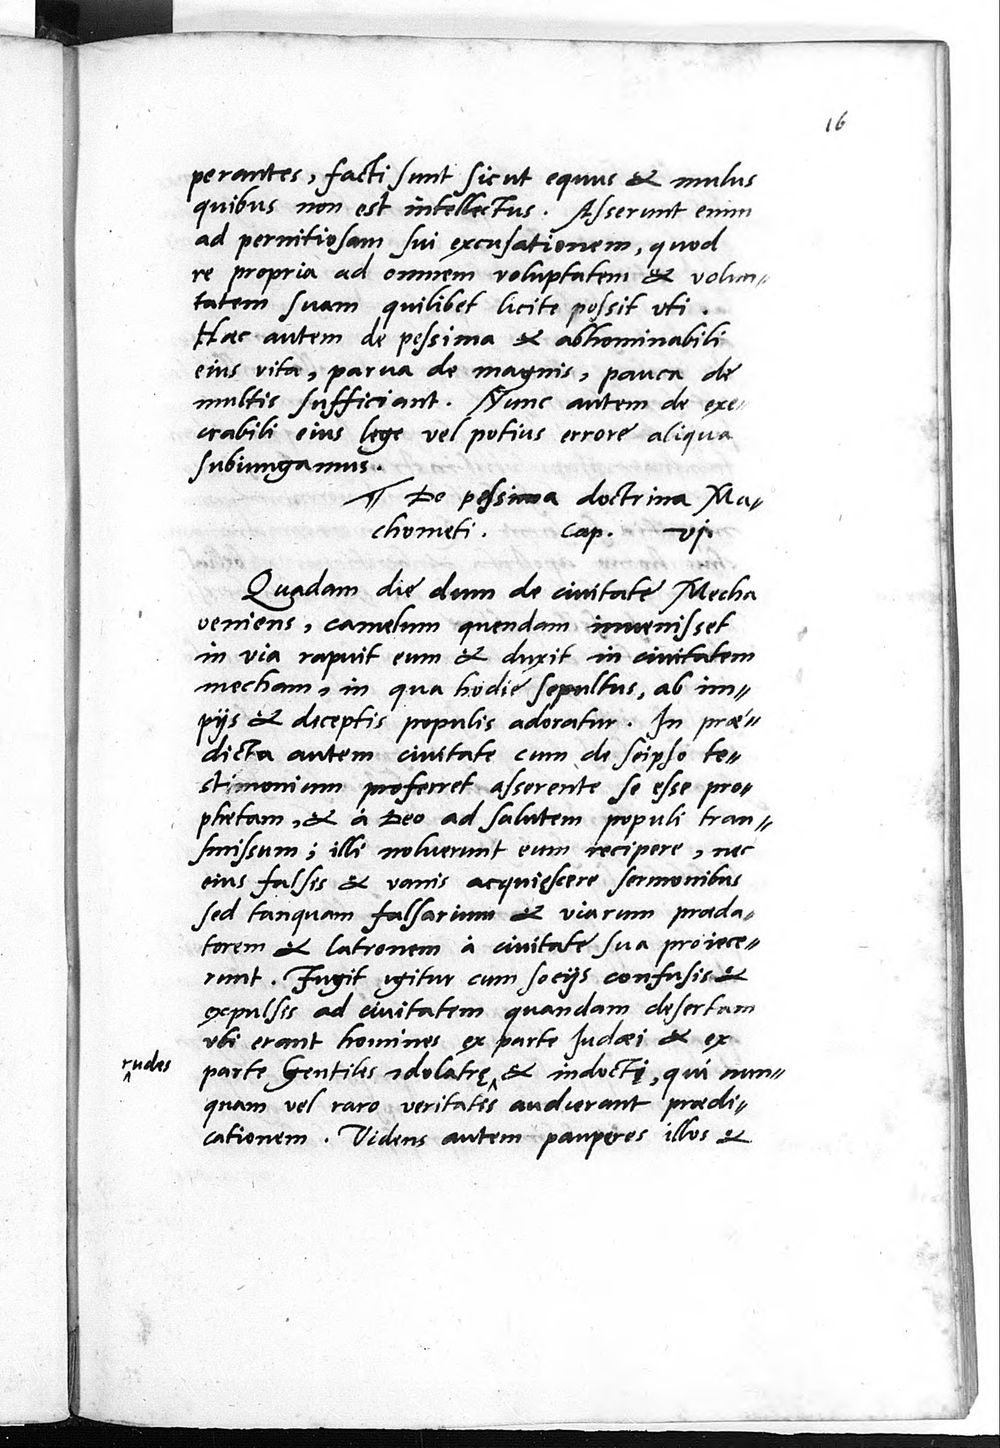 16
perantes, facti sunt sicut equus & mulus
quibus non est intellectus. Asserunt enim
ad pernitiosam sui excusationem, quod
re propria ad omnem voluptatem & volun„
tatem suam quilibet licite possit vti.
Hæc autem de pessima & abhominabili
eius vita, parua de magnis, pauca de
multis sufficiant. Nunc autem de exe„
crabili eius lege vel potius errore aliqua
subiungamus.
¶ De pessima doctrina Ma„
chometi. Cap. vj.
Quadam die dum de ciuitate Mecha
veniens, camelum quendam inuenisset
in via rapuit eum & duxit in ciuitatem
mecham, in qua hodie sepultus, ab im„
pijs & deceptis populis adoratur. In præ„
dicta autem ciuitate cum de seipso te„
stimonium proferret asserente se esse pro„
phetam, & à Deo ad salutem populi tran„
smissum; illi noluerunt eum recipere, nec
eius falsis & vanis acquięscere sermonibus
sed tanquam falsarium & viarum præda„
torem & latronem à ciuitate sua proiece„
runt. Fugit igitur cum socijs confusis &
expulsis ad ciuitatem quandam desertam
vbi erant homines ex parte Judæi & ex
rudes
parte Gentiles idolatrę ^ & indoctį, qui nun„
quam vel raro veritatis audierant prædi„
cationem. Videns autem pauperes illos &